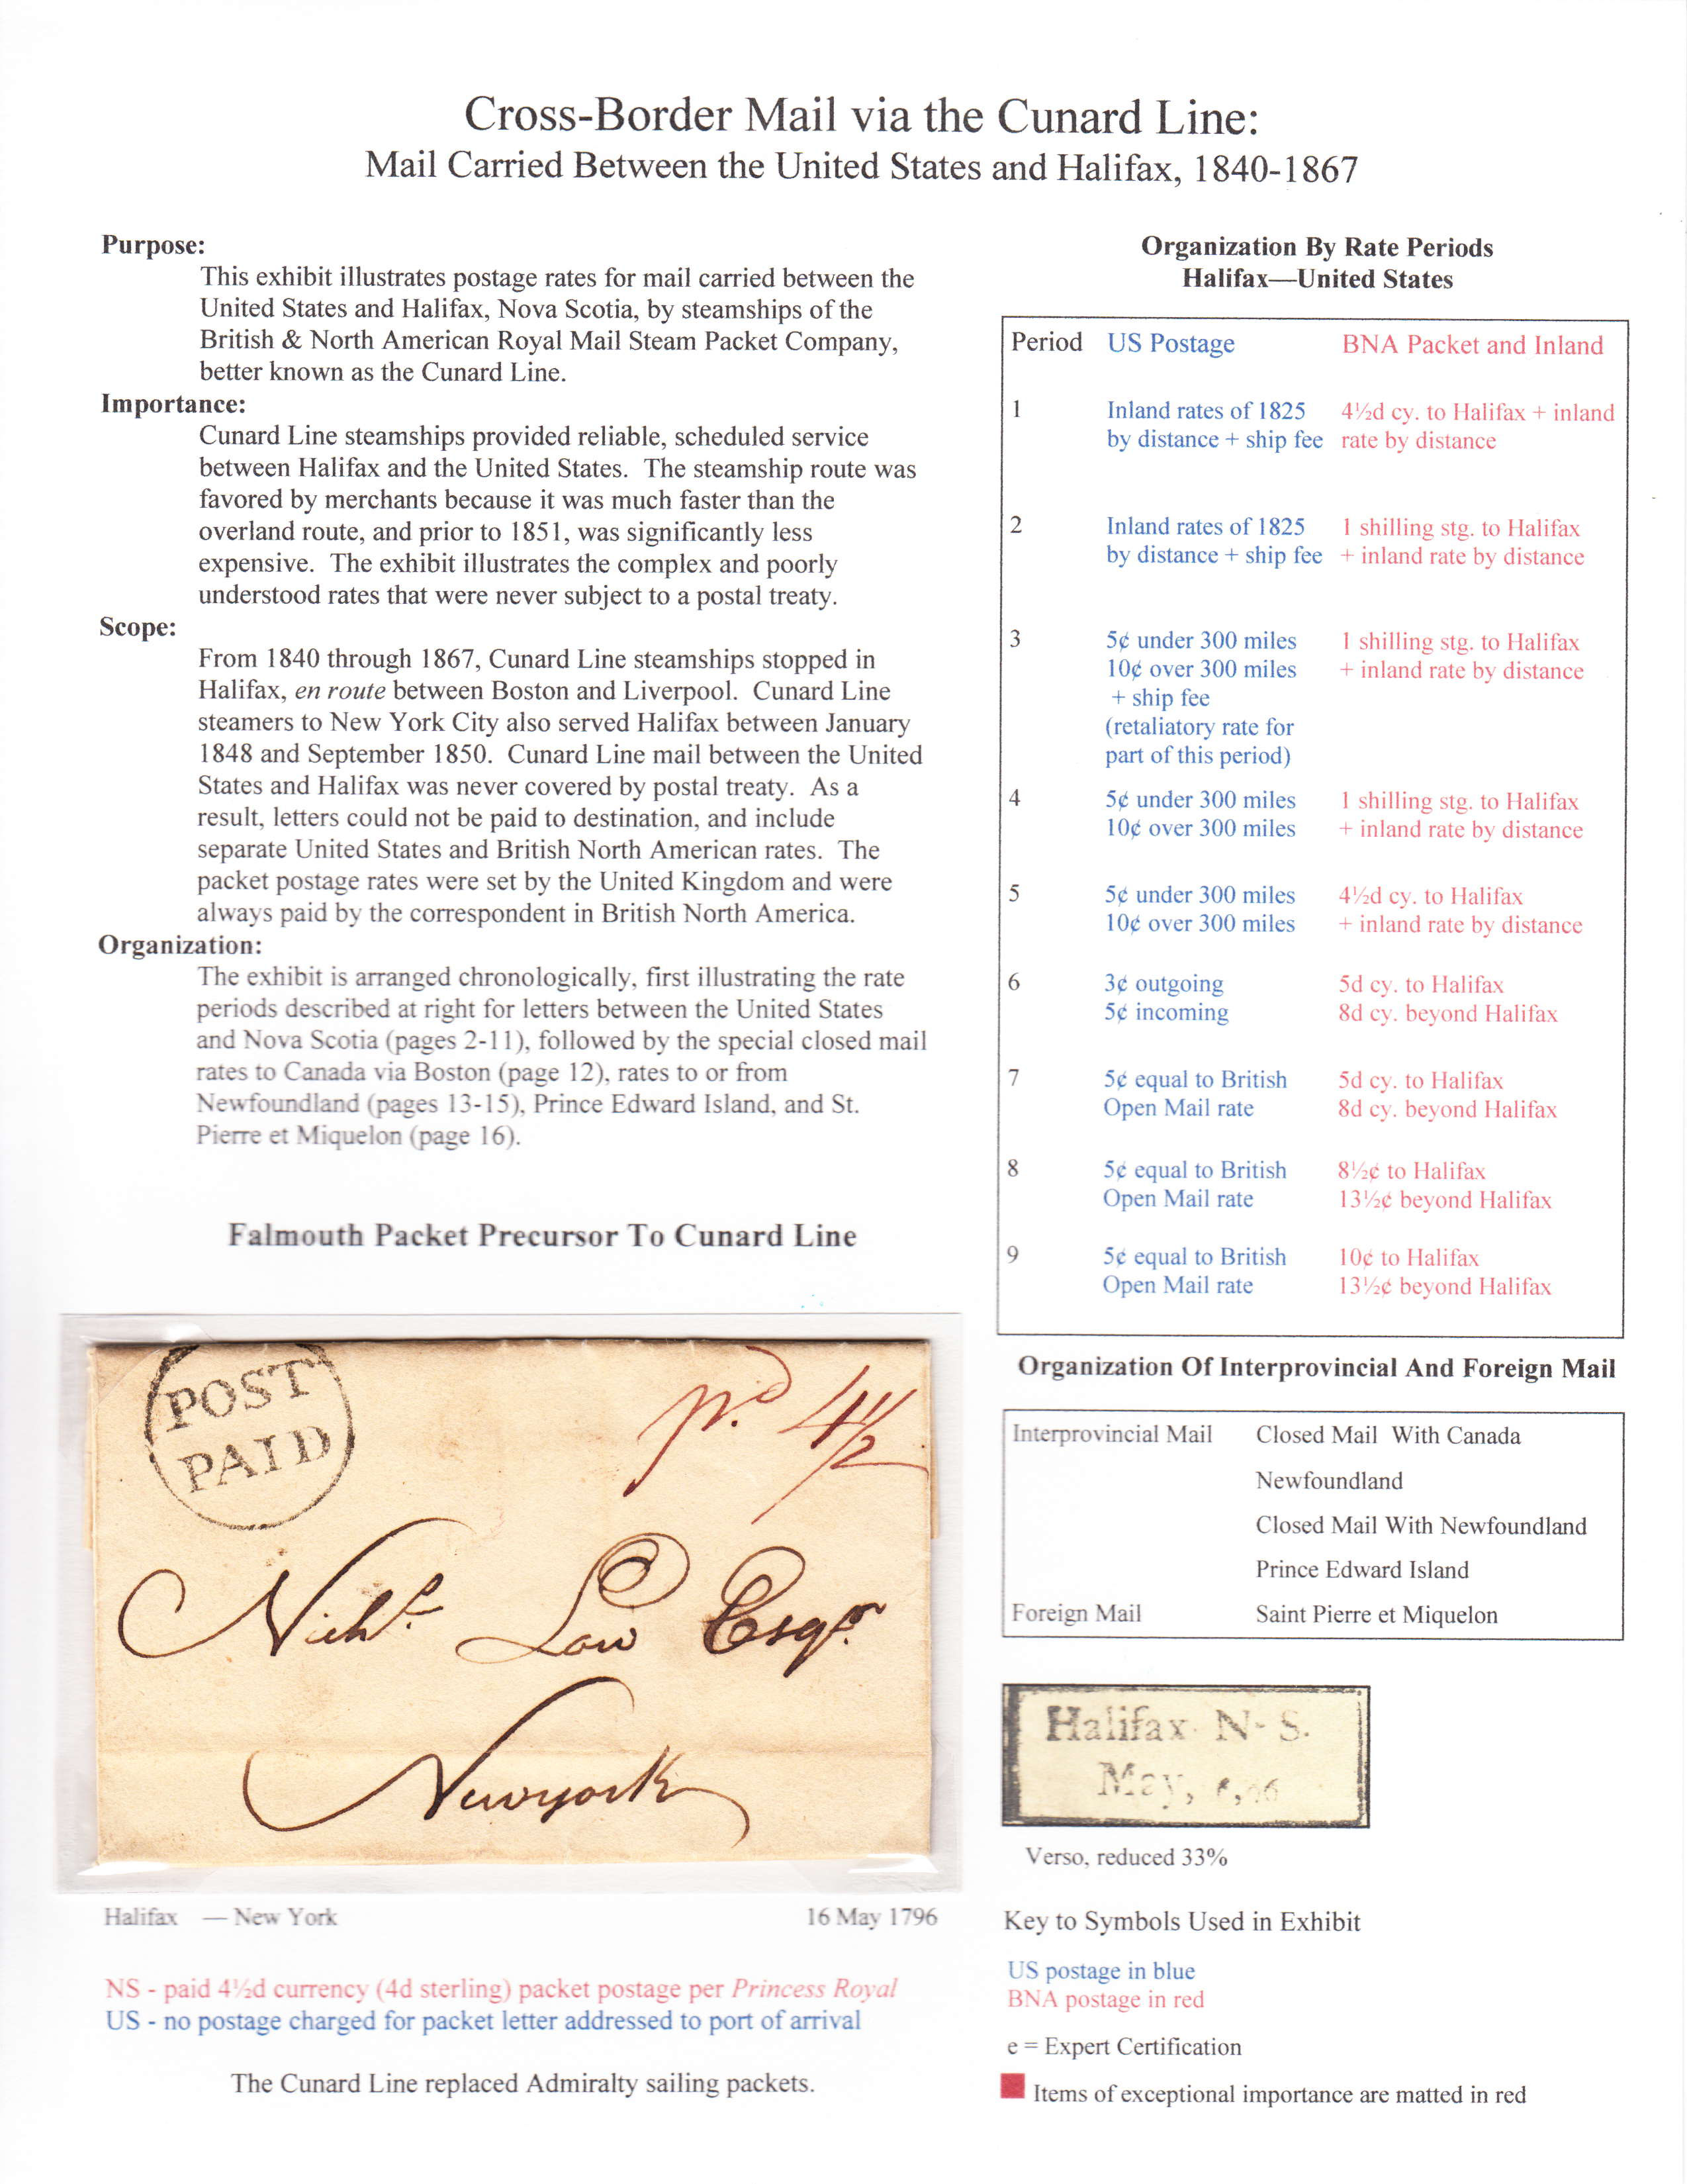 Cross-Border Mail via the Cunard Line:
Mail Carried Between the United States and Halifax, 1840-1867
Purpose:
This exhibit illustrates postage rates for mail carried between the
United States and Halifax, Nova Scotia, by steamships of the
British & North American Royal Mail Steam Packet Company,
better known as the Cunard Line.
Importance:
Cunard Line steamships provided reliable, scheduled service
between Halifax and the United States. The steamship route was
favored by merchants because it was much faster than the
overland route, and prior to 1851, was significantly less
expensive. The exhibit illustrates the complex and poorly
understood rates that were never subject to a postal treaty.
Scope:
From 1840 through 1867, Cunard Line steamships stopped in
Halifax, en route between Boston and Liverpool. Cunard Line
steamers to New York City also served Halifax between January
1848 and September 1850. Cunard Line mail between the United
States and Halifax was never covered by postal treaty. As a
result, letters could not be paid to destination, and include
separate United States and British North American rates. The
packet postage rates were set by the United Kingdom and were
always paid by the correspondent in British North America.
Organization:
The exhibit is arranged chronologically, first illustrating the rate
periods described at right for letters between the United States
and Nova Scotia (pages 2-11), followed by the special closed mail
rates to Canada via Boston (page 12), rates to or from
Newfoundland (pages 13-15), Prince Edward Island, and St.
Pierre et Miquelon (page 16).
Falmouth Packet Precursor To Cunard Line
POST
PAID
pd 4½
Nichs Low Esqr.
Newyork
Halifax — New York 16 May 1796
NS - paid 4½d currency (4d sterling) packet postage per Princess Royal
US - no postage charged for packet letter addressed to port of arrival
The Cunard Line replaced Admiralty sailing packets.
Organization By Rate Periods
Halifax—United States
Period US Postage BNA Packet and Inland
1 Inland rates of 1825 4½d cy. to Halifax + inland
by distance + ship fee rate by distance
2 Inland rates of 1825 1 shilling stg. to Halifax
by distance + ship fee + inland rate by distance
3 5¢ under 300 miles 1 shilling stg. to Halifax
10¢ over 300 miles + inland rate by distance
+ ship fee
(retaliatory rate for
part of this period)
4 5¢ under 300 miles 1 shilling stg. to Halifax
10¢ over 300 miles + inland rate by distance
5 5¢ under 300 miles 4½d cy. to Halifax
10¢ over 300 miles + inland rate by distance
6 3¢ outgoing 5d cy. to Halifax
5¢ incoming 8d cy. beyond Halifax
7 5¢ equal to British 5d cy. to Halifax
Open Mail rate 8d cy. beyond Halifax
8 5¢ equal to British 8½¢ to Halifax
Open Mail rate 13½¢ beyond Halifax
9 5¢ equal to British 10¢ to Halifax
Open Mail rate 13½¢ beyond Halifax
Organization Of Interprovincial And Foreign Mail
Interprovincial Mail Closed Mail With Canada
Newfoundland
Closed Mail With Newfoundland
Prince Edward Island
Foreign Mail Saint Pierre et Miquelon
Halifax N- S.
May,
Verso, reduced 33%
Key to Symbols Used in Exhibit
US postage in blue
BNA postage in red
e = Expert Certification
Items of exceptional importance are matted in red